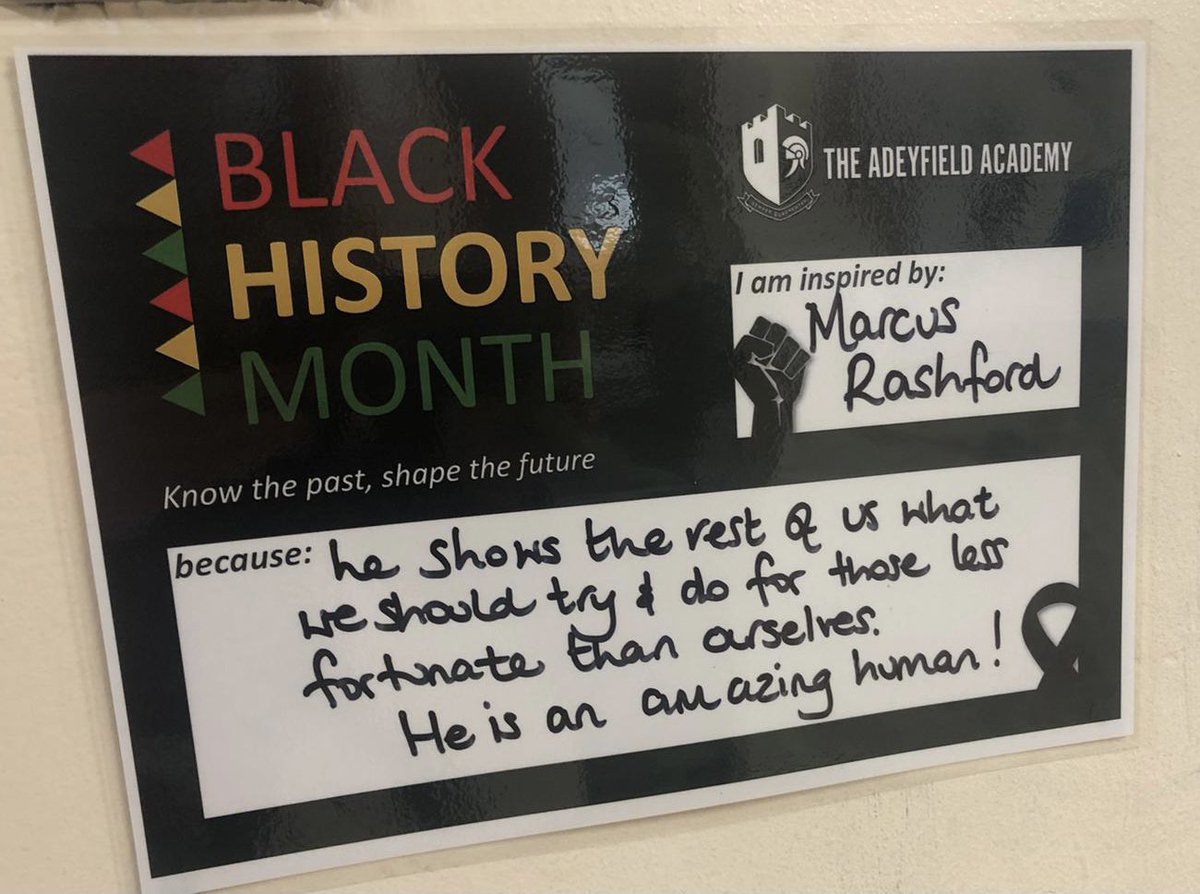 BLACK
HISTORY
MONTH
Know the past, shape the future
THE ADEYFIELD ACADEMY
I am inspired by:
Marcus
Rashford
because: he shows the rest of us what
we should try & do for those less
fortunate than ourselves.
He is an amazing human!